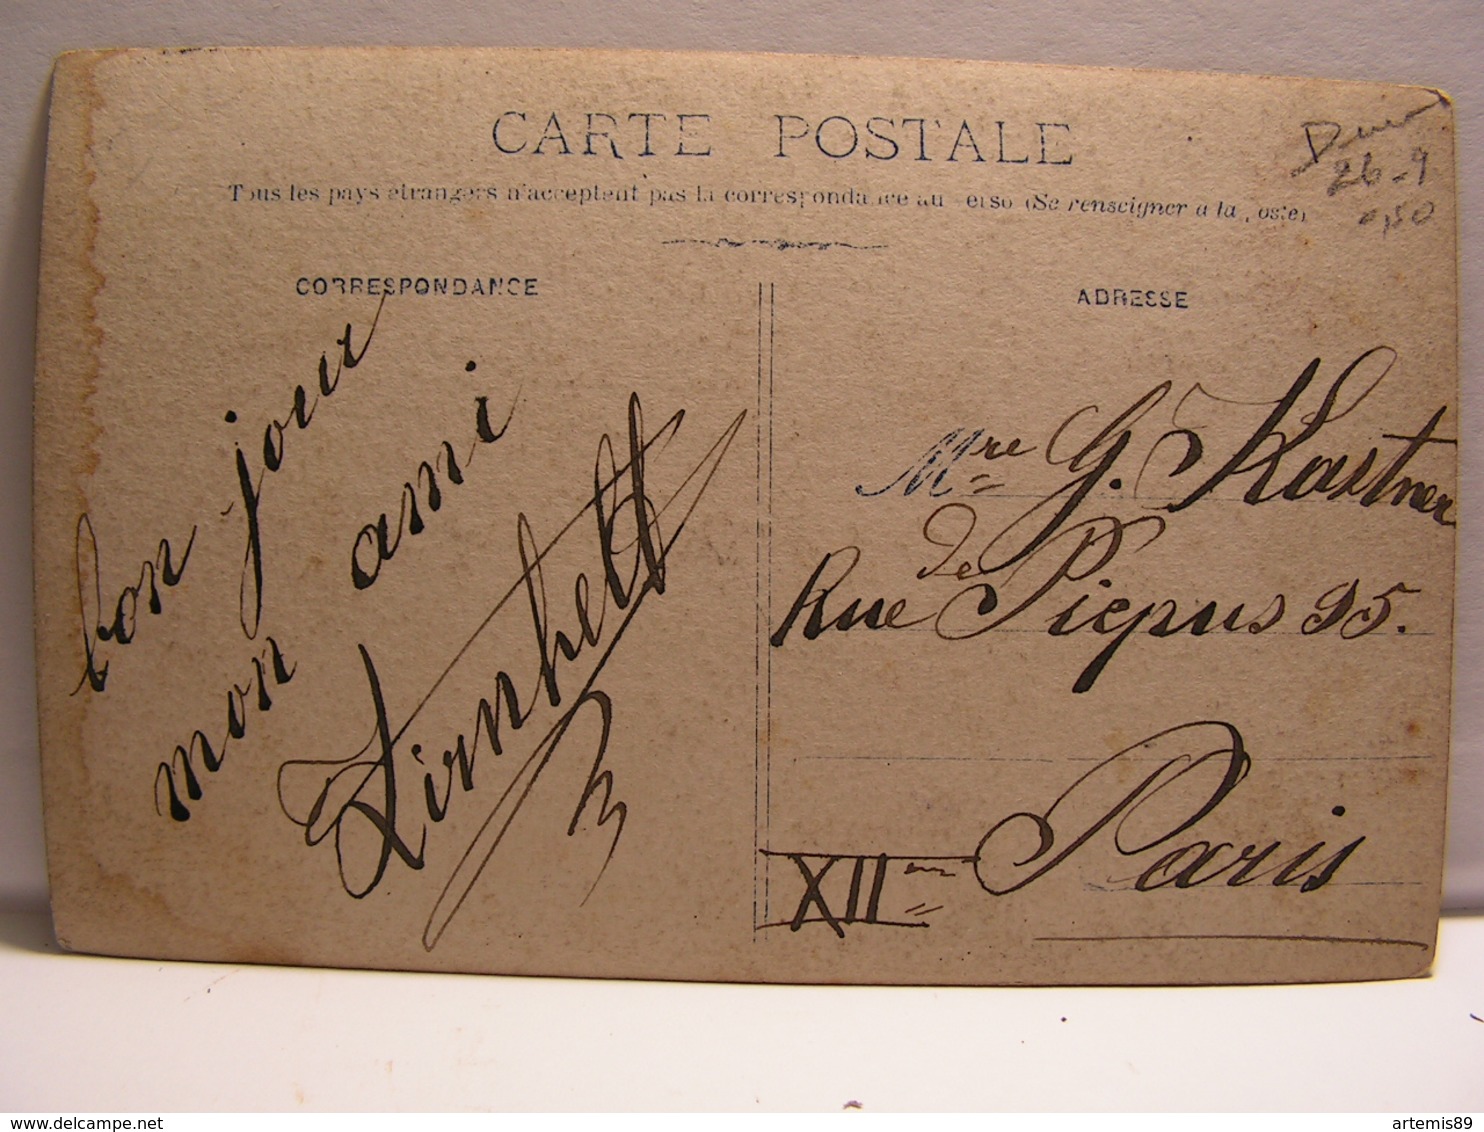 CARTE POSTALE
Tous les pays étrangers n'acceptent pas la correspondance au verso (Se renseigner à la poste)
CORRESPONDANCE
ADRESSE
26-9
0,50
bon jour
mon ami
Zirnheld
Mre G. Kastner
Rue de Picpus 95.
Paris
XIIme
artemis89